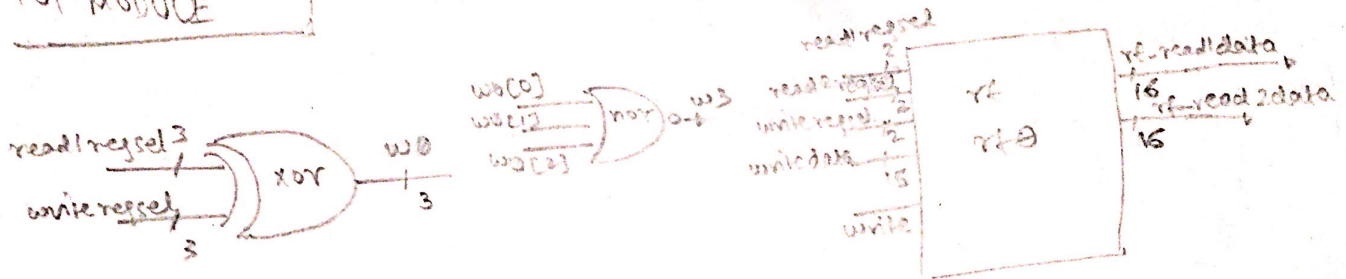 MODULE
read1regsel 3
writeregsel
3
xor
w0
3
w0[0]
w0[1]
w0[2]
nor
w3
read1regsel
2
read2regsel
2
writeregsel
2
writedata
15
write
rf
rf0
rf_read1data
16
rf_read2data
16